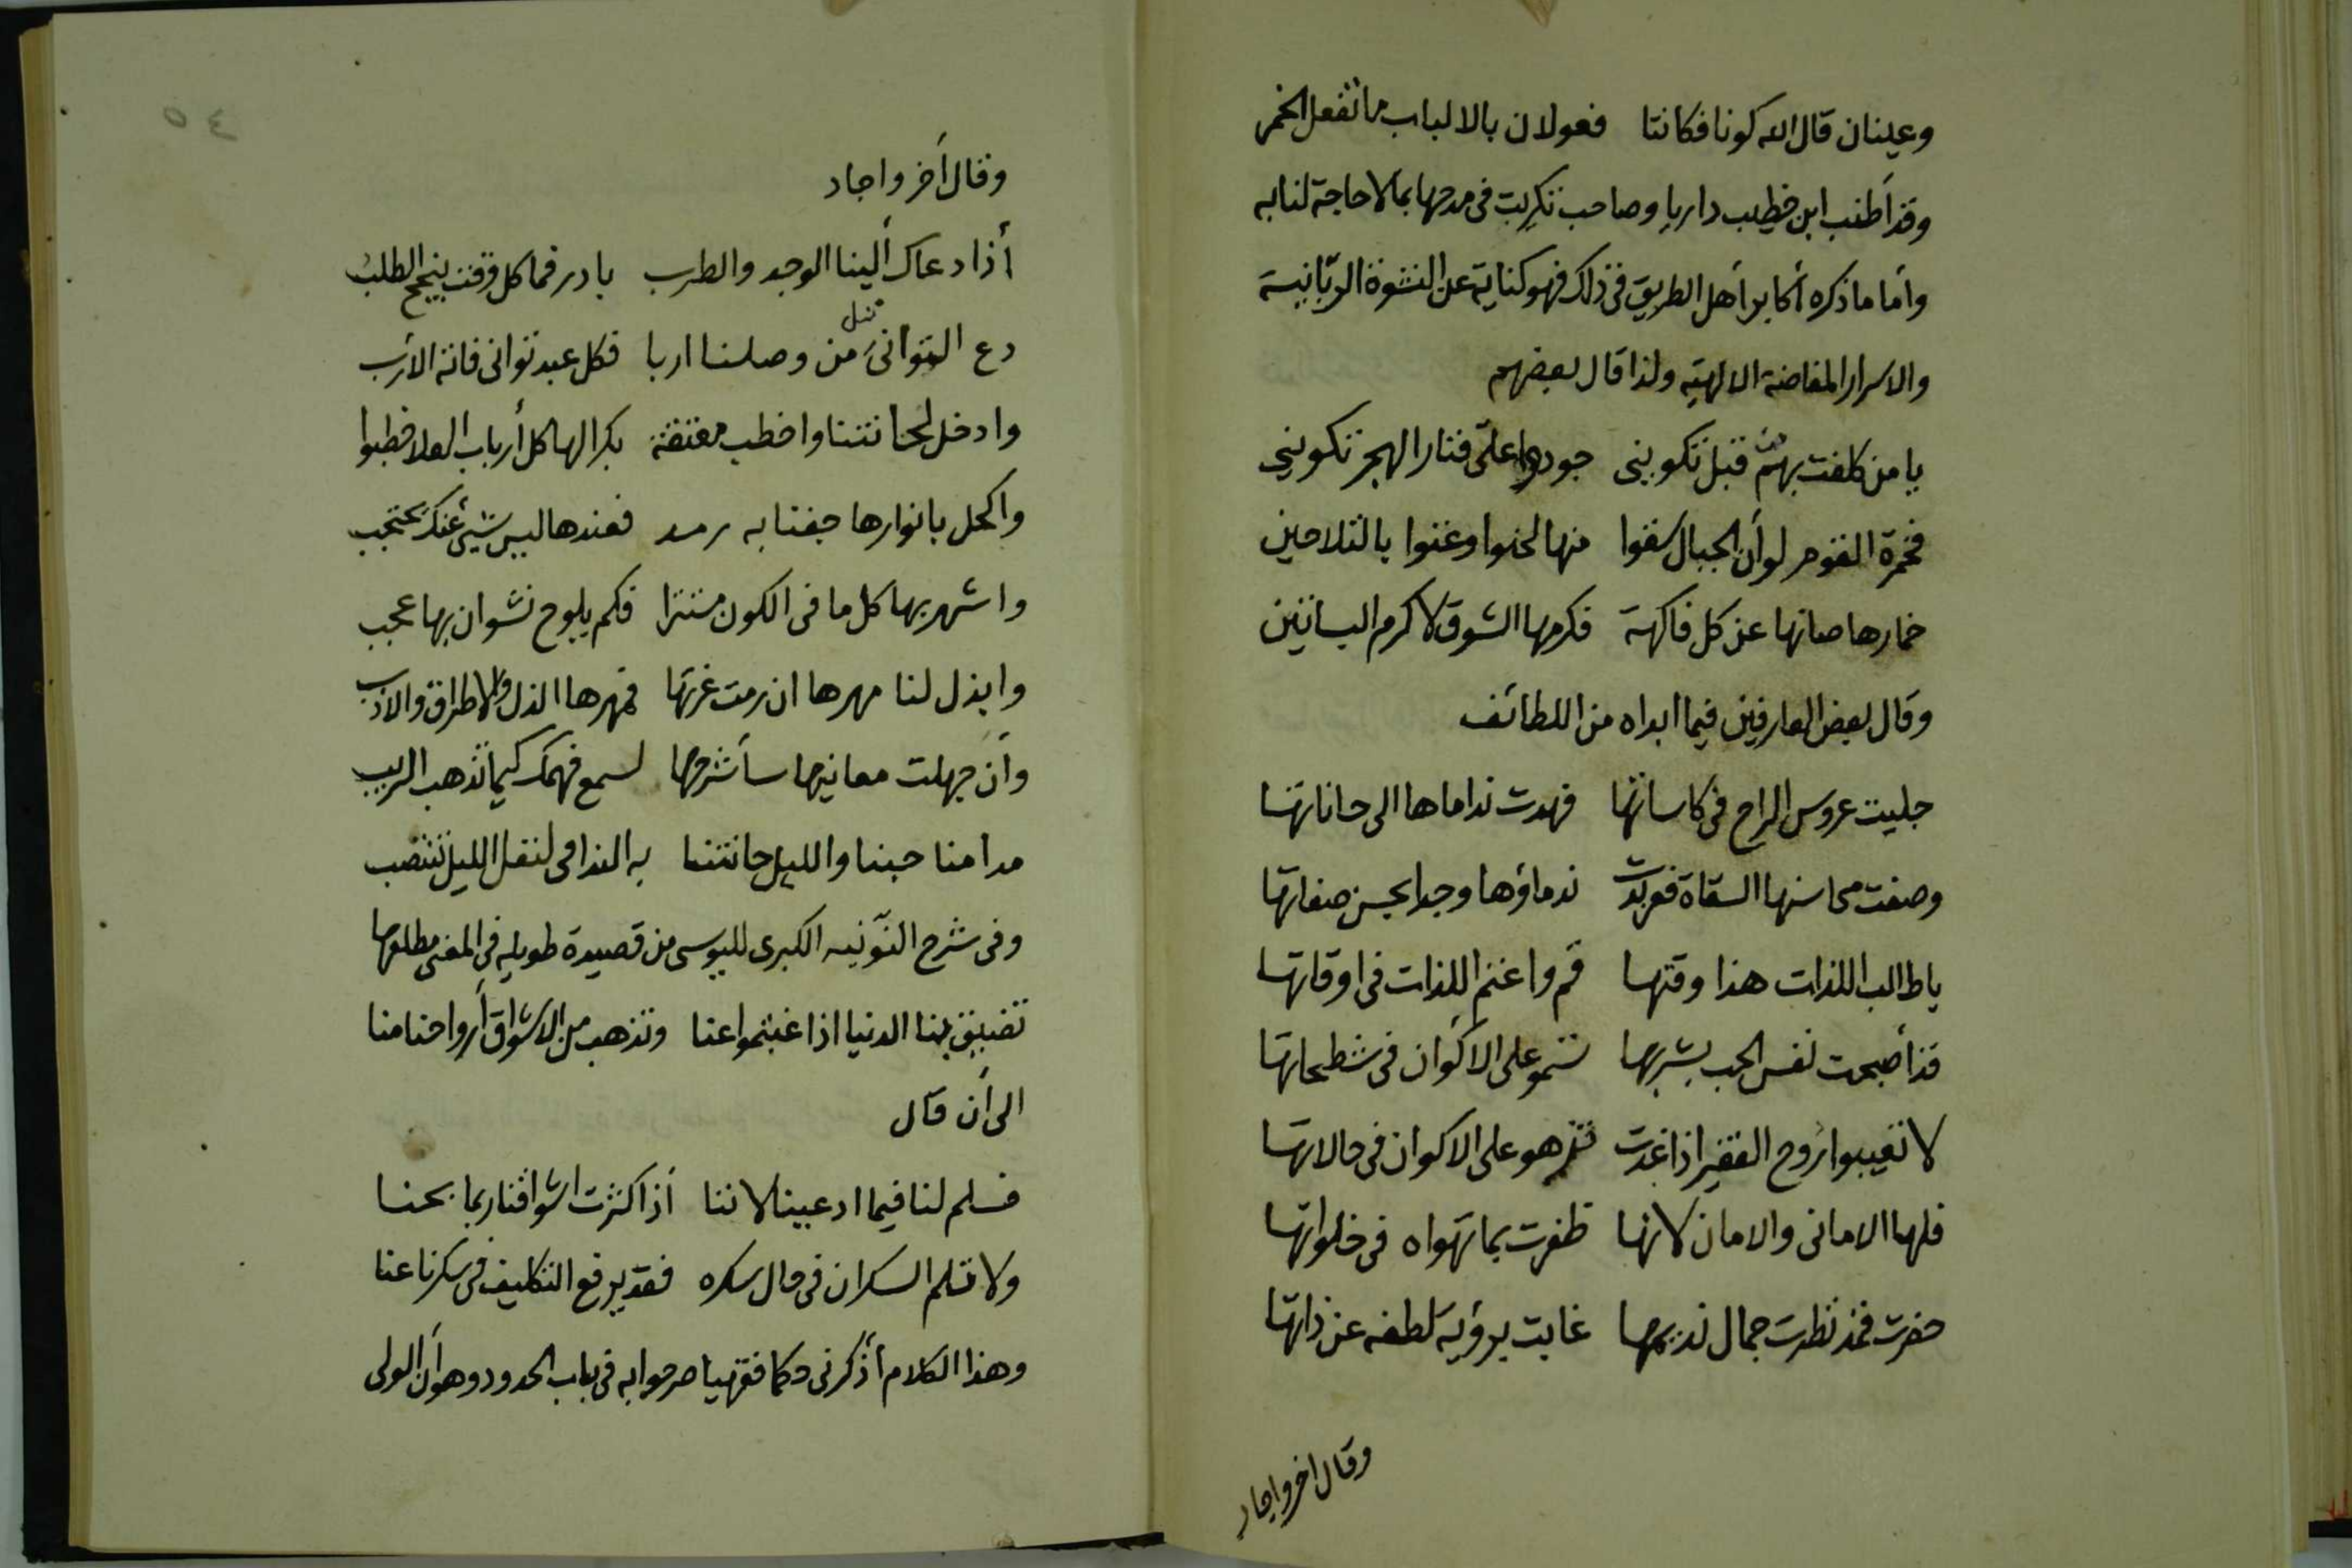 وعينان قال الله كونا فكانتا فعولان بالالباب ما تفعل الخمر
وقد أطنب ابن خطيب داريا وصاحب تكريت فى مدحها بما لا حاجة لنا به
وأما ما ذكره أكابر أهل الطريق فى ذلك فهو كناية عن النشوة الربّانية
والاسرار المفاضة الالهيّه ولذا قال بعضهم
يا من كلفت بهم من قبل تكوينى جودوا علىّ فنار الهجر تكوينى
فخمرة القوم لو أن الجبال سقوا منها لحنوا وغنوا بالتلاحين
خمارها صانها عن كل فاكهة فكرمها الشوق لا كرم البساتين
وقال بعض العارفين فيما ابداه من اللطائف
جليت عروس الراح فى كاساتها فهدت نداماها الى حاناتها
وصفت محاسنها السقاة فعربدت ندماؤها وجدا بحسن صفاتها
يا طالب اللذات هذا وقتها قم واغنم اللذات فى اوقاتها
قد أصبحت نفس المحب بشربها تسمو على الاكوان فى شطحاتها
لا تعيبوا روح الفقير اذا غدت تزهو على الاكوان فى حالاتها
فلها الامانى والامان لانها ظفرت بما تهواه فى خلواتها
حضرت فمذ نظرت جمال نديمها غابت برؤية لطفه عن ذاتها
وقال اخر واجاد
٤٥
وقال أخر واجاد
أذا دعاك ألينا الوجد والطرب بادر فما كل وقت ينجح الطلب
دع التوانى تنل من وصلنا اربا فكل عبد توانى فاته الأرب
وادخل لحانتنا واخطب معتقة بكرا لها كل أرباب العلا خطبوا
واكحل بانوارها جفنا به رمد فعندها ليس شىء عنك يحتجب
واشهد بها كل ما فى الكون مستترا فكم يلوح نشوان بها عجب
وابذل لنا مهرها ان رمت غرتها فمهرها الذل والاطراق والادب
وأن جهلت معانيها سأشرحها لسمع فهمك كيما تذهب الريب
مدامنا حبنا والليل حانتنا به الندامى لنقل الليل تنتصب
وفى شرح النّونيه الكبرى لليوسى من قصيدة طويله فى المغنى مطلعها
تضيق بنا الدنيا اذا غبتموا عنا وتذهب من الاشواق أرواحنا منا
الى أن قال
فسلم لنا فيما ادعينا لاننا أذا كثرت اشواقنا ربما بحنا
ولا تلم السكران فى حال سكره فقد يرفع التكليف فى سكرنا عنا
وهذا الكلام أذكرنى حكما فقهيا صرحوا به فى باب الحدود وهو أن الولى